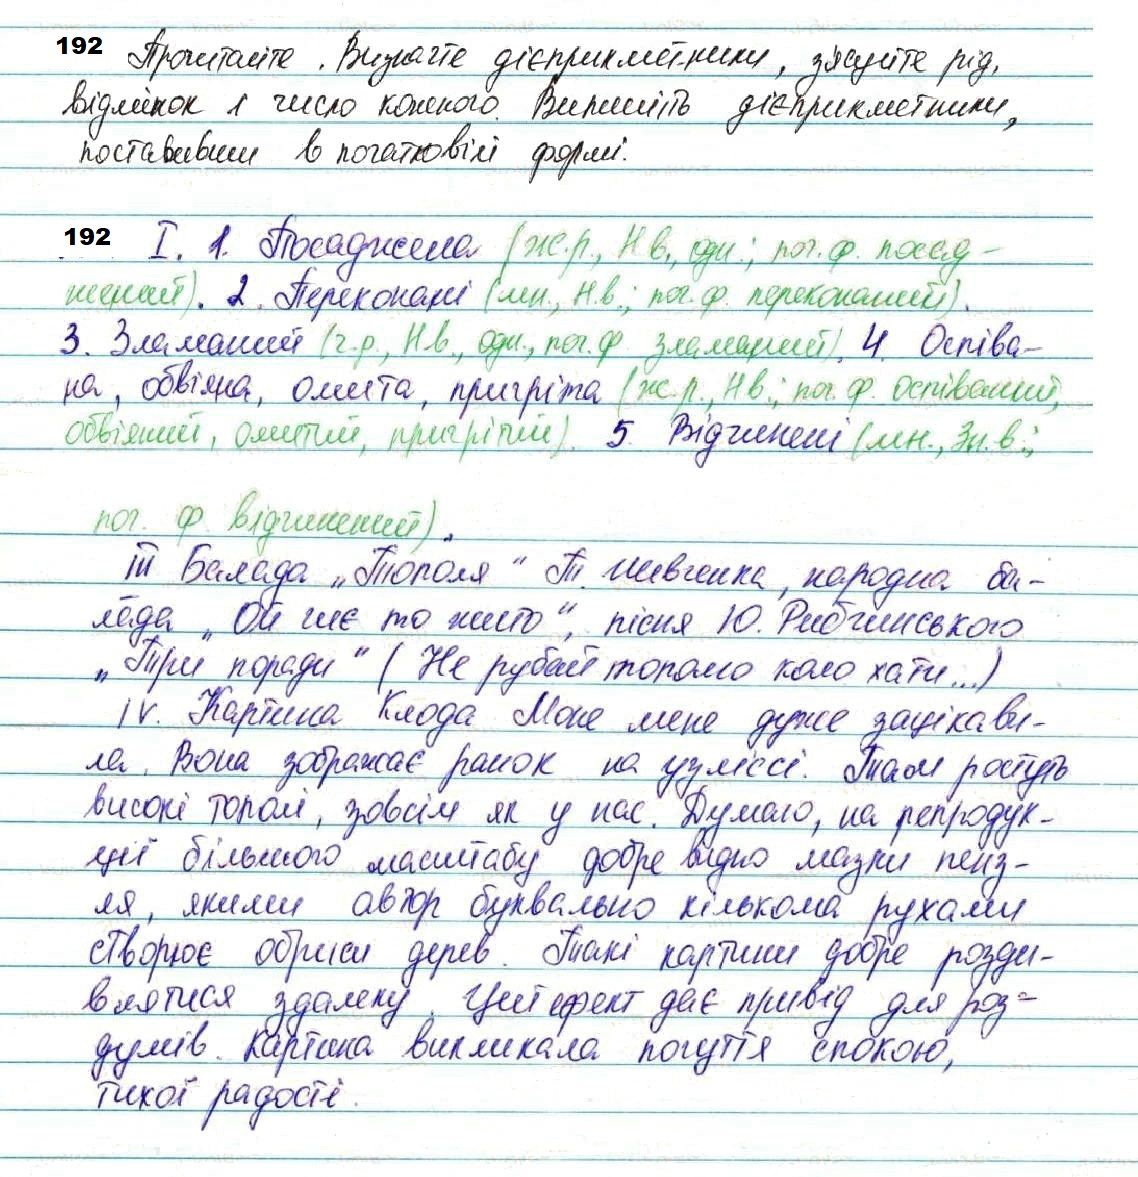 192 Прочитайте. Визначте дієприкметники, з'ясуйте рід,
відмінок і число кожного. Випишіть дієприкметники,
поставивши в початковій формі.
192 І. 1. Посаджена (ж.р., Н.в., одн.; поч. ф. посад-
жений). 2. Переконані (мн., Н.в.; поч. ф. переконаний).
3. Зламаний (ч.р., Н.в., одн., поч. ф. зламаний). 4. Оспіва-
на, обвіяна, омита, пригріта (ж.р., Н.в.; поч. ф. оспіваний,
обвіяний, омитий, пригрітий). 5. Відчинені (мн., Зн.в.;
поч. ф. відчинений).
ІІІ Балада „Тополя" Т. Шевченка, народна ба-
лада „Ой чиє то жито", пісня Ю. Рибчинського
„Три поради" (Не рубай тополю коло хати...)
IV. Картина Клода Моне мене дуже зацікави-
ла. Вона зображає ранок на узліссі. Там ростуть
високі тополі, зовсім як у нас. Думаю, на репродук-
ції більшого масштабу добре видно мазки пенз-
ля, якими автор буквально кількома рухами
створює обриси дерев. Такі картини добре розди-
влятися здалеку. Цей ефект дає привід для роз-
думів. Картина викликала почуття спокою,
тихої радості.